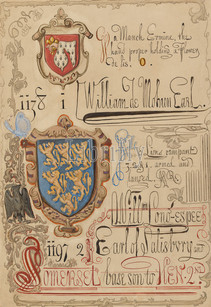 a Manch Ermine, the
hand proper holding a Flower
de lis. O.
1138 1 William de Mohun Earl
Lions rampant
3.2.1. armed and
langed
Will: Long-espee
1197 2 Earl of Salisbury
SOMERSET base son to HEN: 2